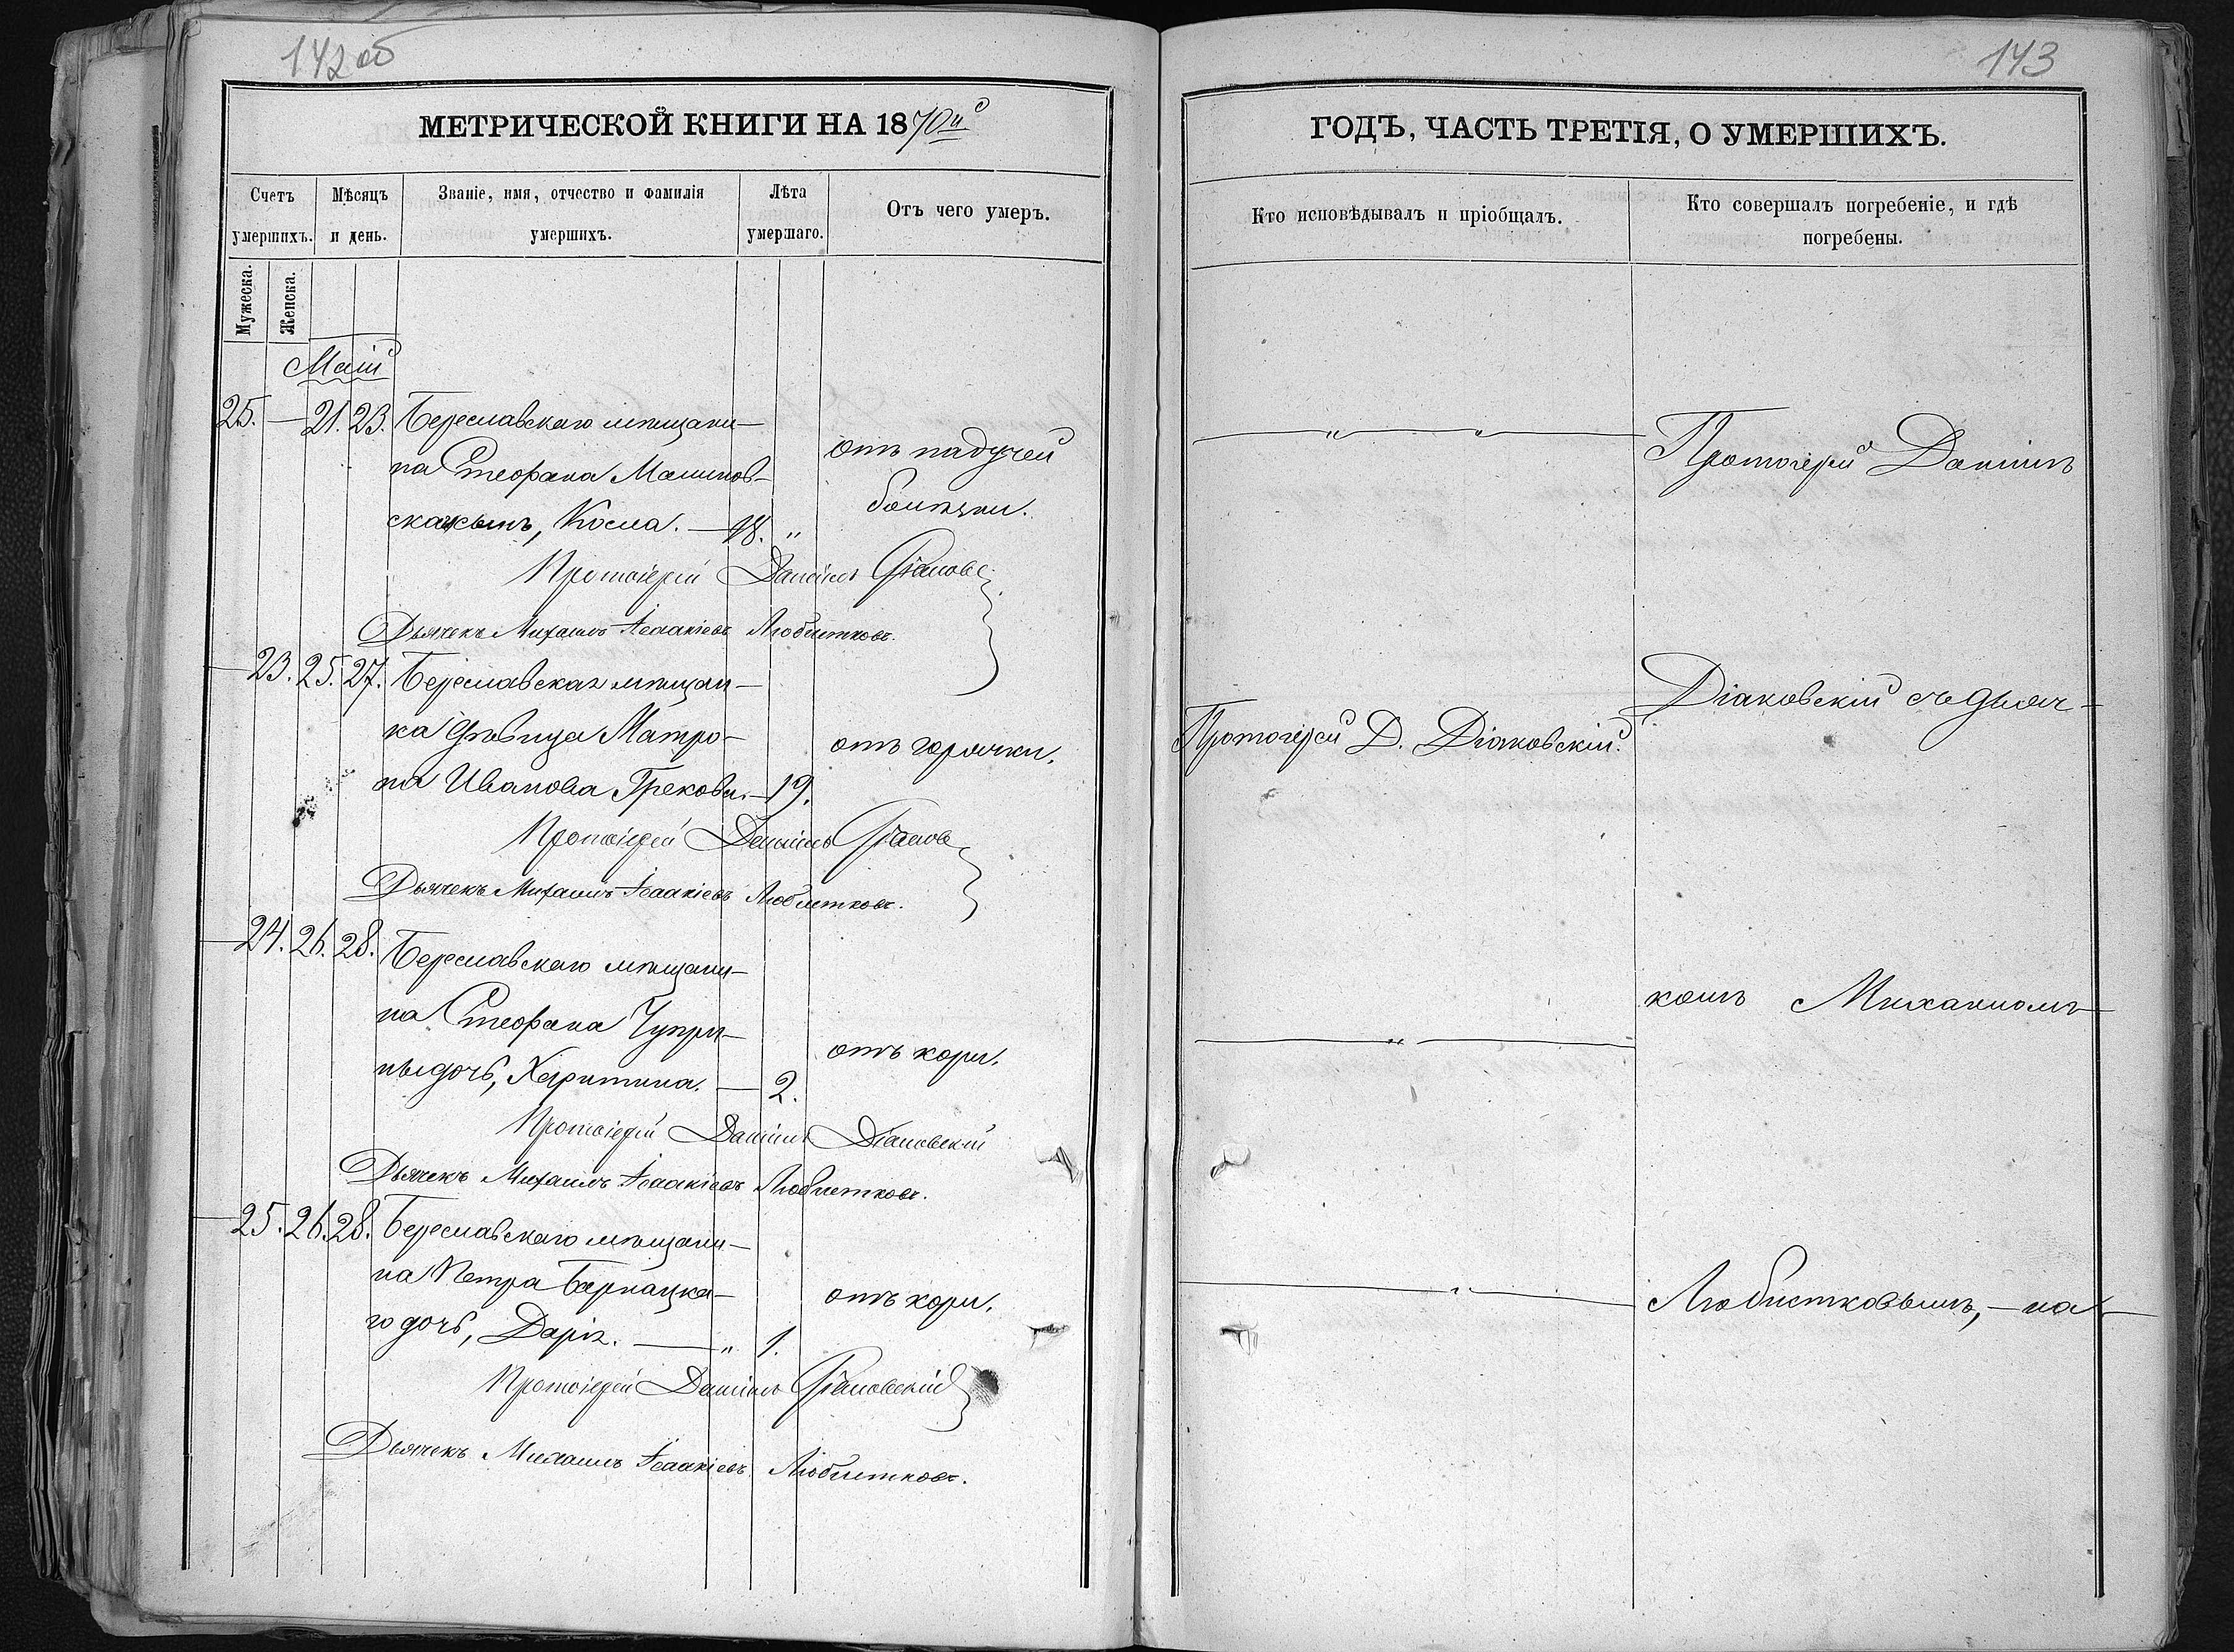 142 об
МЕТРИЧЕСКОЙ КНИГИ НА 1870й
Счетъ умершихъ.
Мѣсяцъ и день.
Званіе, имя, отчество и фамилія умершихъ.
Лѣта умершаго.
Отъ чего умеръ.
Мужеска.
Женска.
Маій
25. — 21. 23. Береславскаго мѣщани-
на Стефана Малинов-
скаго сынъ, Косма. — 18. „
отъ падучей
болѣзни.
Протоіерей Даніилъ Діаковс
Дьячекъ Михаилъ Исаакіевъ Любистковъ.
— 23. 25. 27. Береславская мѣщан-
ка дѣвица Матро-
на Ивановa Грекова. — 19.
отъ горячки.
Протоіерей Даніилъ Діаков
Дьячекъ Михаилъ Исаакіевъ Любистковъ.
— 24. 26. 28. Береславскаго мѣщани-
на Стефана Чупри-
ны дочь, Харитина. — 2.
отъ кори.
Протоіерей Даніилъ Діаковскій
Дьячекъ Михаилъ Исаакіевъ Любистковъ.
— 25. 26. 28. Береславскаго мѣщани-
на Петра Бернацка-
го дочь, Дарія. — „ 1.
отъ кори.
Протоіерей Даніилъ Діаковскій
Дьячекъ Михаилъ Исаакіевъ Любистковъ.
143
ГОДЪ, ЧАСТЬ ТРЕТІЯ, О УМЕРШИХЪ.
Кто исповѣдывалъ и пріобщалъ.
Кто совершалъ погребеніе, и гдѣ
погребены.
— „ — „ —
Протоіерей Даніилъ
Протоіерей Д. Діаковскій.
Діаковскій съ дьяч-
— „ —
комъ Михаиломъ
— „ —
Любистковымъ, — на